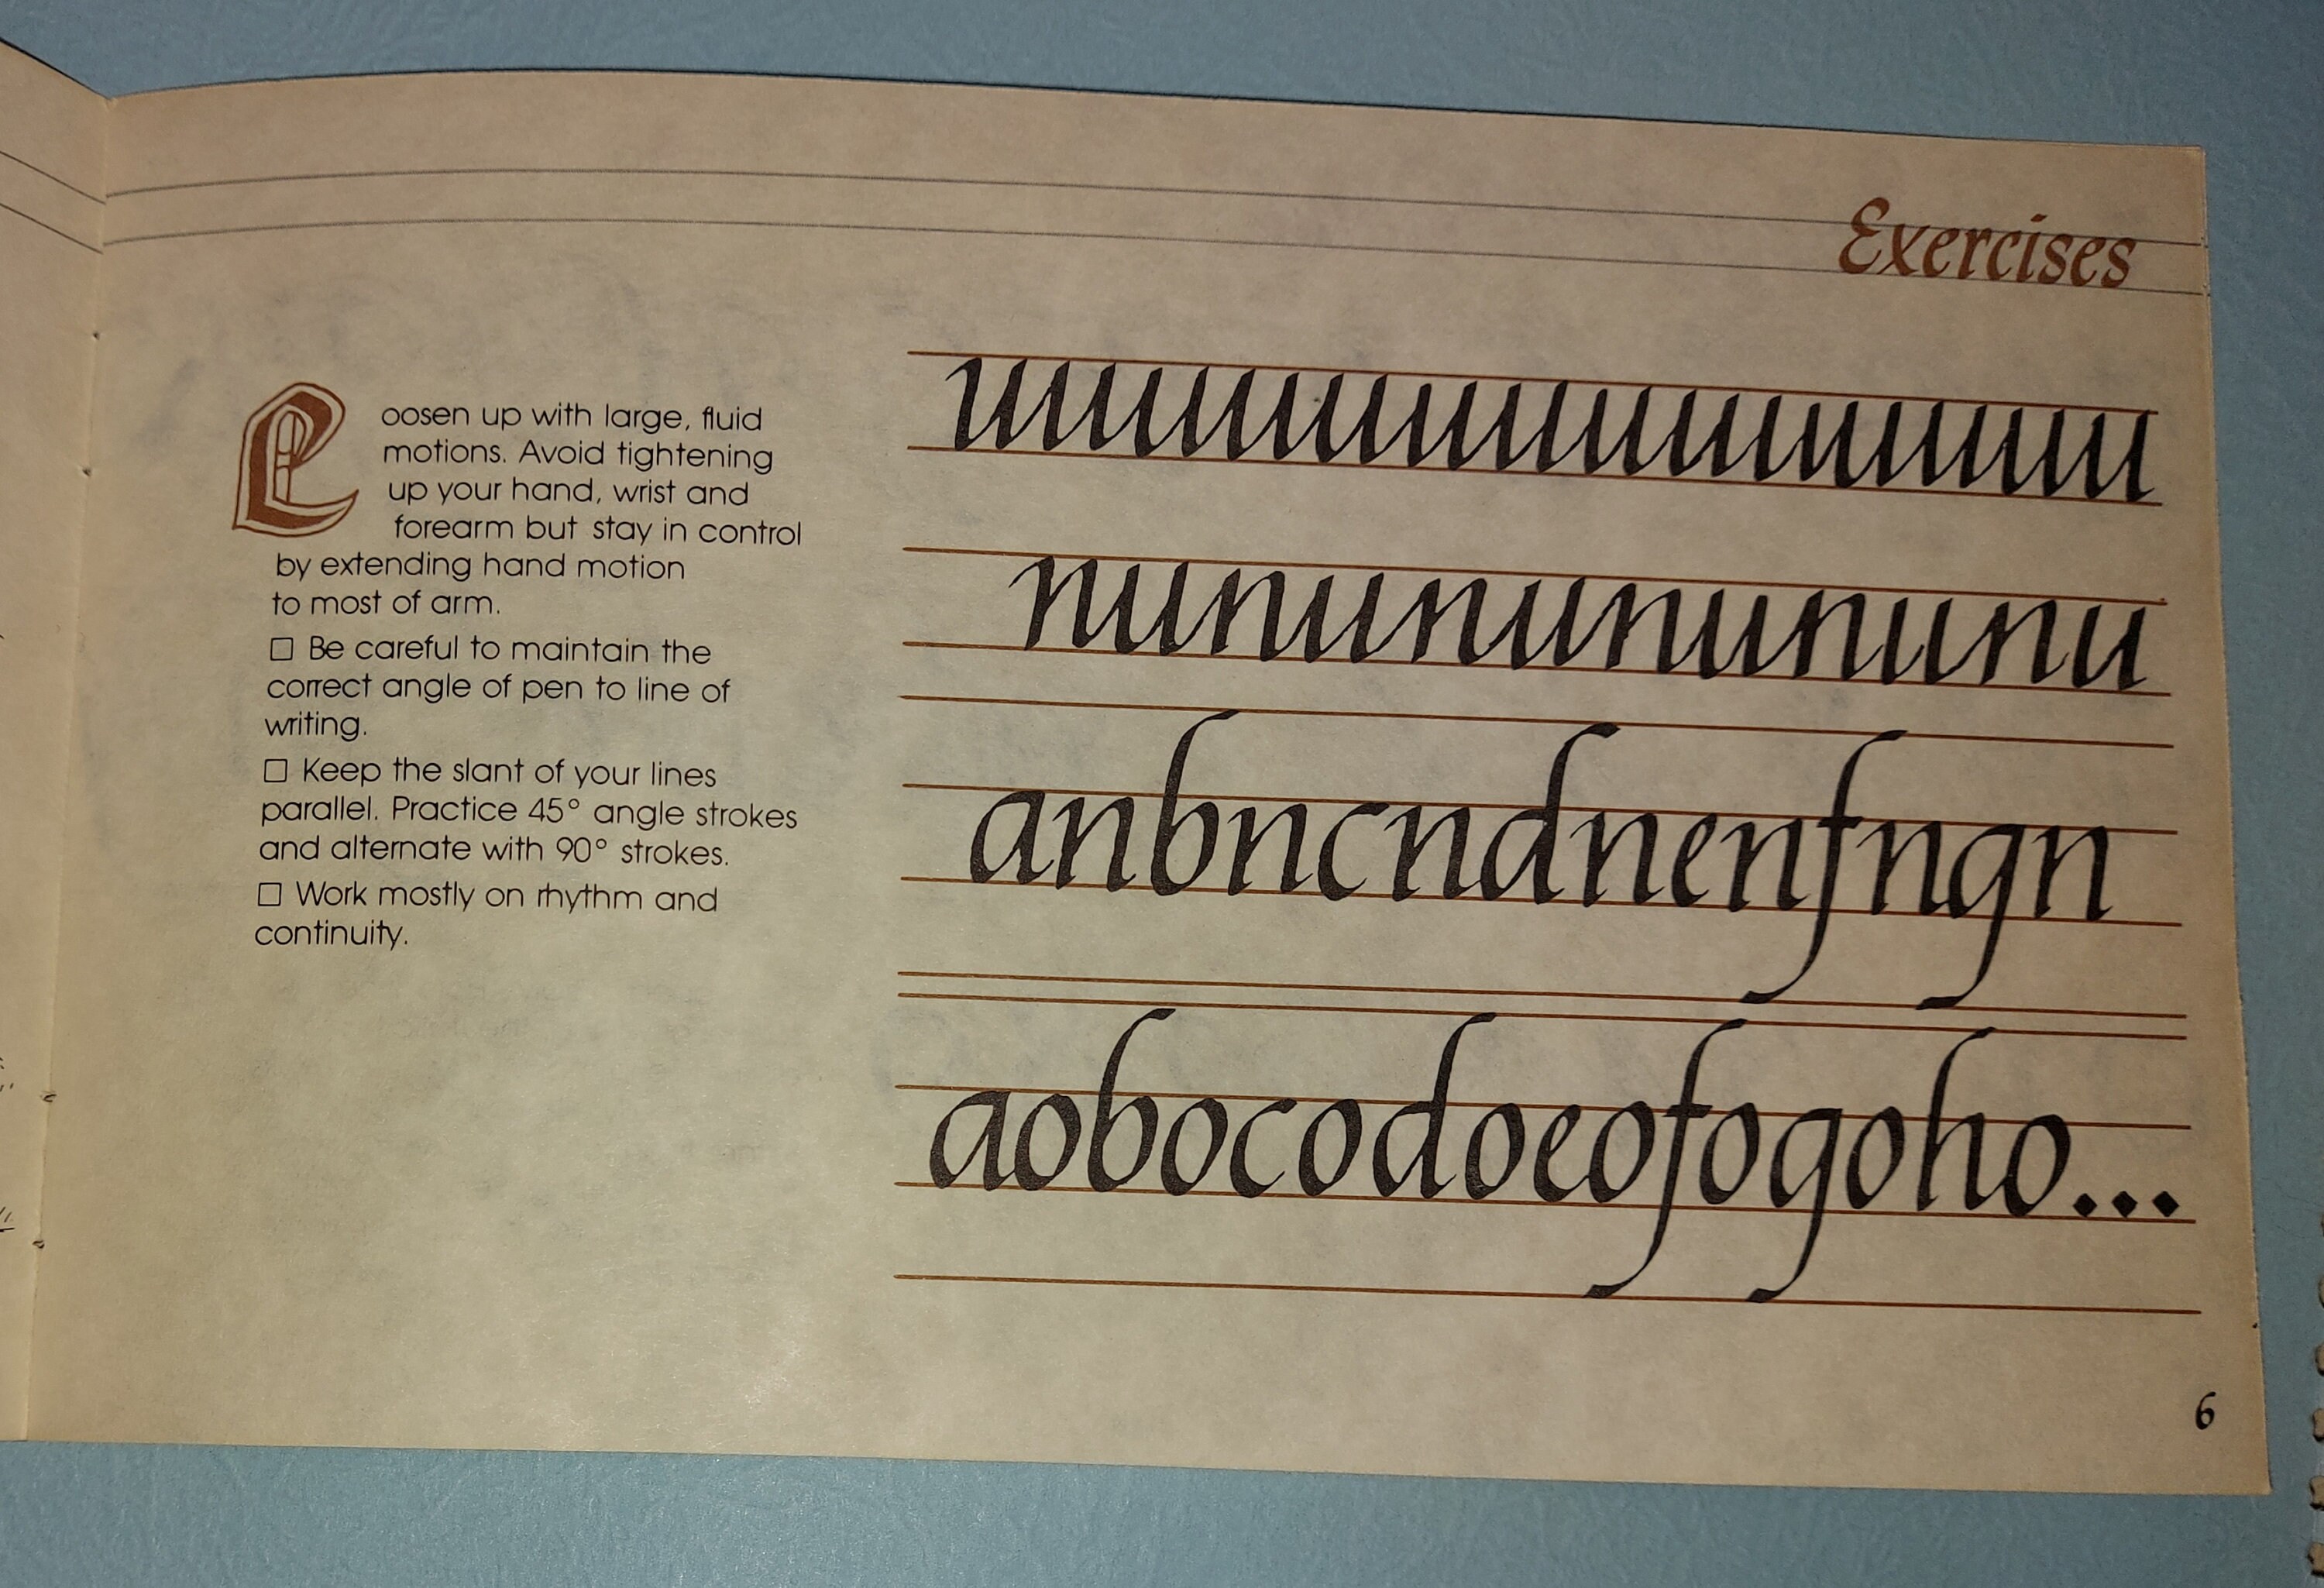 Exercises
Loosen up with large, fluid
motions. Avoid tightening
up your hand, wrist and
forearm but stay in control
by extending hand motion
to most of arm.
☐ Be careful to maintain the
correct angle of pen to line of
writing.
☐ Keep the slant of your lines
parallel. Practice 45° angle strokes
and alternate with 90° strokes.
☐ Work mostly on rhythm and
continuity.
uuuuuuuuuuuuuu
nununununununu
anbncndnenfngn
aobocodoeofogoho...
6